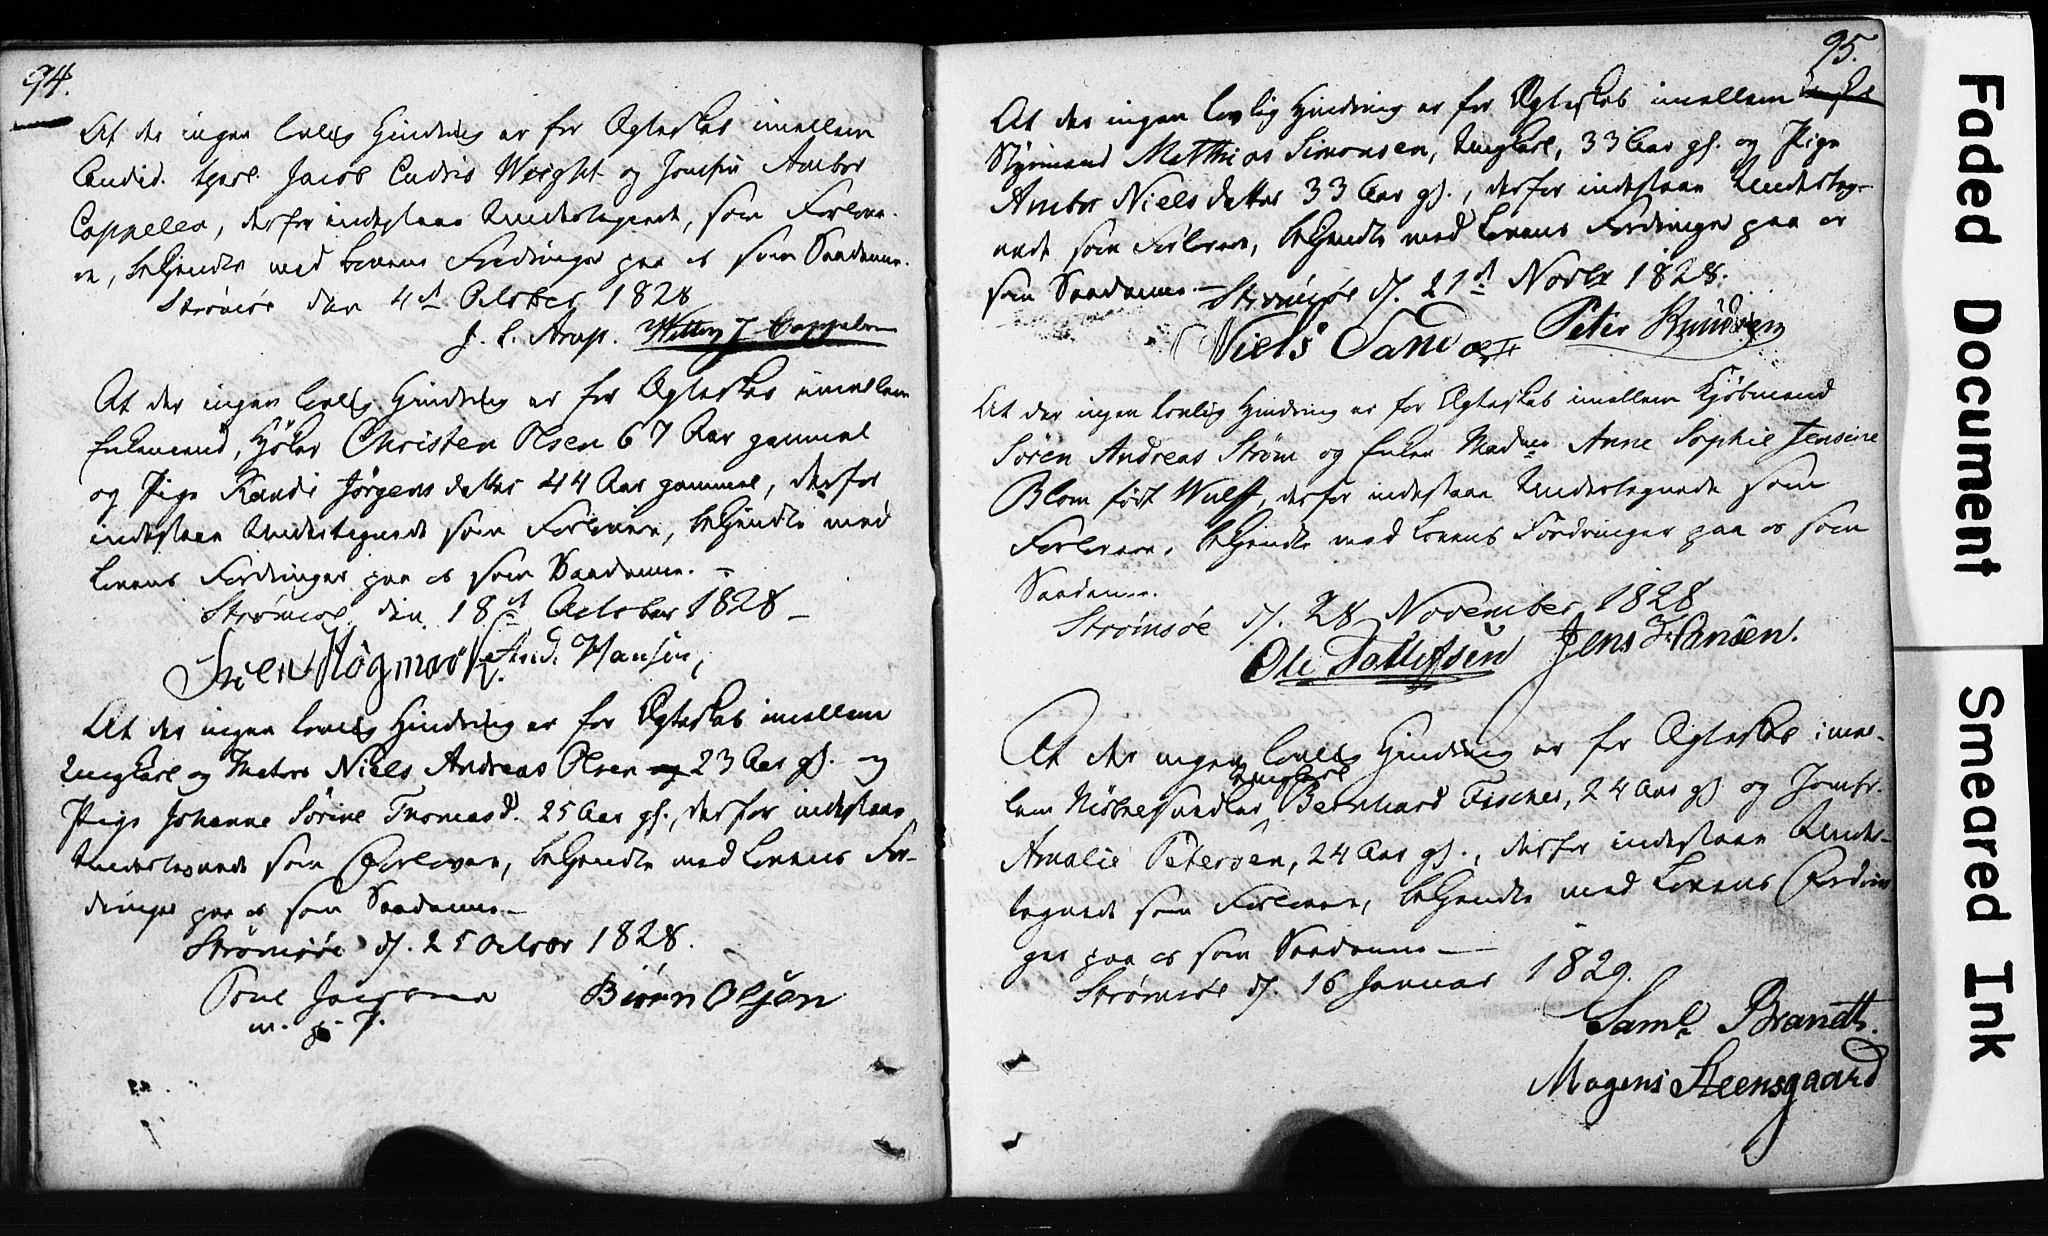 94.
At der ingen lovlig Hindring er for Ægteskab imellem
Candid. Jacob Wright og Jomfru Ambor
Cappelen, derfor indestaae Undertegnede, som Forlove-
re, bekjendte med Lovens Fordringer paa os som Saadanne.
Strømsøe den 4d October 1828
J. C. Arup. Cappelen
At der ingen lovlig Hindring er for Ægteskab imellem
Enkemand, Christen Olsen 67 Aar gammel
og Pige Randi Jørgensdatter 44 Aar gammel, derfor
indestaae Undertegnede som Forlovere, bekjendte med
Lovens Fordringer paa os som Saadanne. -
Strømsøe den 18d October 1828 -
And. Hansen,
At der ingen lovlig Hindring er for Ægteskab imellem
Ungkarl og Matros Niels Andreas Olsen 23 Aar gl. og
Pige Johanne Sørine Thomasd. 25 Aar gl., derfor indestaae
Undertegnede som Forlovere, bekjendte med Lovens For-
dringer paa os som Saadanne.-
Strømsøe d. 25 October 1828.
Biørn Olsen
m. p. P.
95.
At der ingen lovlig Hindring er for Ægteskab imellem
Styrmand Matthias Simonsen, Ungkarl, 33 Aar gl. og Pige
Ambor Nielsdatter 33 Aar gl., derfor indestaae Underteg-
nede som Forlovere, bekjendte med Lovens Fordringer paa os
som Saadanne.- Strømsøe d. 21d Novbr 1828.
Niels Peter Knudsen
At der ingen lovlig Hindring er for Ægteskab imellem Kjøbmand
Søren Andreas Strøm og Enken Madme Anne Sophie Jensine
Blom født Wulff, derfor indestaae Undertegnede som
Forlovere, bekjendte med Lovens Fordringer paa os som
Saadanne.
Strømsøe d. 28 November 1828
Ole Tollefsen Jens Hansen.
At der ingen lovlig Hindring er for Ægteskab imel-
lem Ungkarl Bernhard Fischer, 24 Aar gl. og Jomfr.
Amalie Petersen, 24 Aar gl., derfor indestaae Under-
tegnede som Forlovere, bekjendte med Lovens Fordrin-
ger paa os som Saadanne -
Strømsøe d. 16 Januar 1829.
Saml. Brandt.
Mogens Steensgaard
Faded Document
Smeared Ink